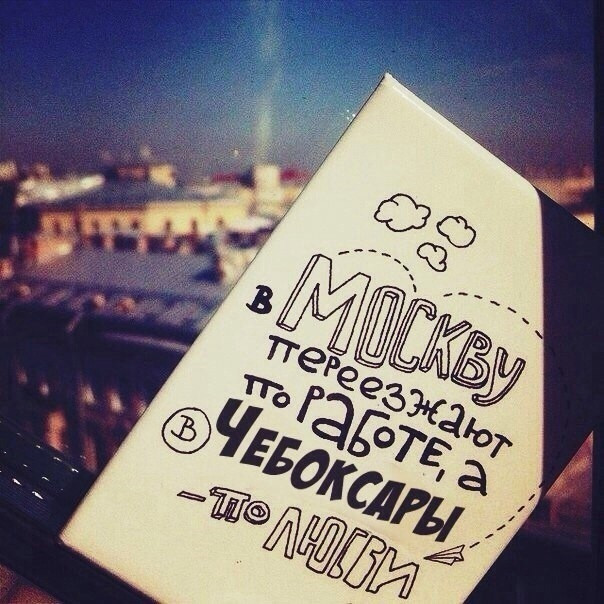 в Москву
переезжают
по работе, а
в Чебоксары
– по любви